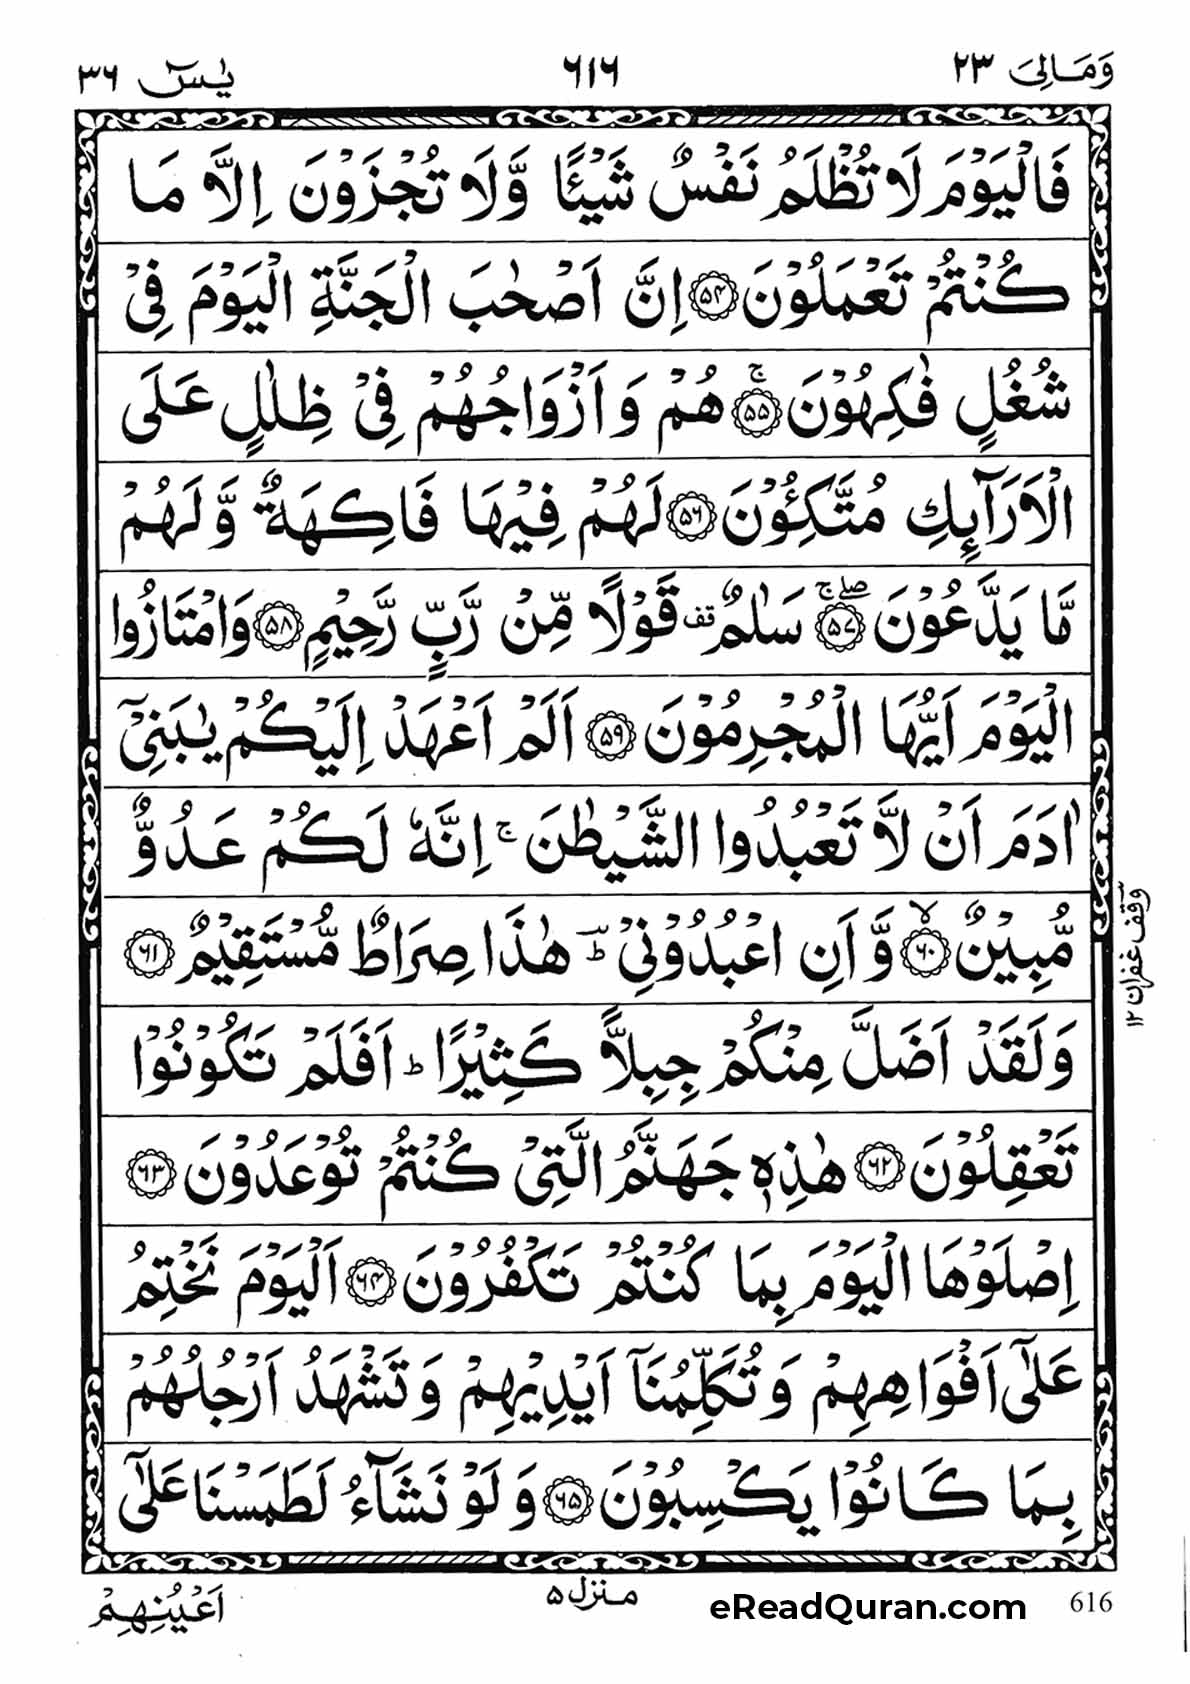 وَمَالِیَ ٢٣ ٦١٦ یٰسٓ ٣٦
فَالْیَوْمَ لَا تُظْلَمُ نَفْسٌ شَیْـًٔا وَّلَا تُجْزَوْنَ اِلَّا مَا
كُنْتُمْ تَعْمَلُوْنَ ۝۵۴ اِنَّ اَصْحٰبَ الْجَنَّةِ الْیَوْمَ فِیْ
شُغُلٍ فٰكِهُوْنَ ۝ۚ۵۵ هُمْ وَاَزْوَاجُهُمْ فِیْ ظِلٰلٍ عَلَی
الْاَرَآىِٕكِ مُتَّكِـُٔوْنَ ۝۵۶ لَهُمْ فِیْهَا فَاكِهَةٌ وَّلَهُمْ
مَّا یَدَّعُوْنَ ۝ۖۚ۵۷ سَلٰمٌ ۫ قف قَوْلًا مِّنْ رَّبٍّ رَّحِیْمٍ ۝۵۸ وَامْتَازُوا
الْیَوْمَ اَیُّهَا الْمُجْرِمُوْنَ ۝۵۹ اَلَمْ اَعْهَدْ اِلَیْكُمْ یٰبَنِیْۤ
اٰدَمَ اَنْ لَّا تَعْبُدُوا الشَّیْطٰنَ ۚ اِنَّهٗ لَكُمْ عَدُوٌّ
مُّبِیْنٌ ۝ۙ۶۰ وَّاَنِ اعْبُدُوْنِیْ ؕ هٰذَا صِرَاطٌ مُّسْتَقِیْمٌ ۝۶۱
وقف غفران ١٢
وَلَقَدْ اَضَلَّ مِنْكُمْ جِبِلًّا كَثِیْرًا ؕ اَفَلَمْ تَكُوْنُوْا
تَعْقِلُوْنَ ۝۶۲ هٰذِهٖ جَهَنَّمُ الَّتِیْ كُنْتُمْ تُوْعَدُوْنَ ۝۶۳
اِصْلَوْهَا الْیَوْمَ بِمَا كُنْتُمْ تَكْفُرُوْنَ ۝۶۴ اَلْیَوْمَ نَخْتِمُ
عَلٰۤی اَفْوَاهِهِمْ وَتُكَلِّمُنَاۤ اَیْدِیْهِمْ وَتَشْهَدُ اَرْجُلُهُمْ
بِمَا كَانُوْا یَكْسِبُوْنَ ۝۶۵ وَلَوْ نَشَآءُ لَطَمَسْنَا عَلٰۤی
اَعْیُنِهِمْ
منزل ۵
eReadQuran.com
616